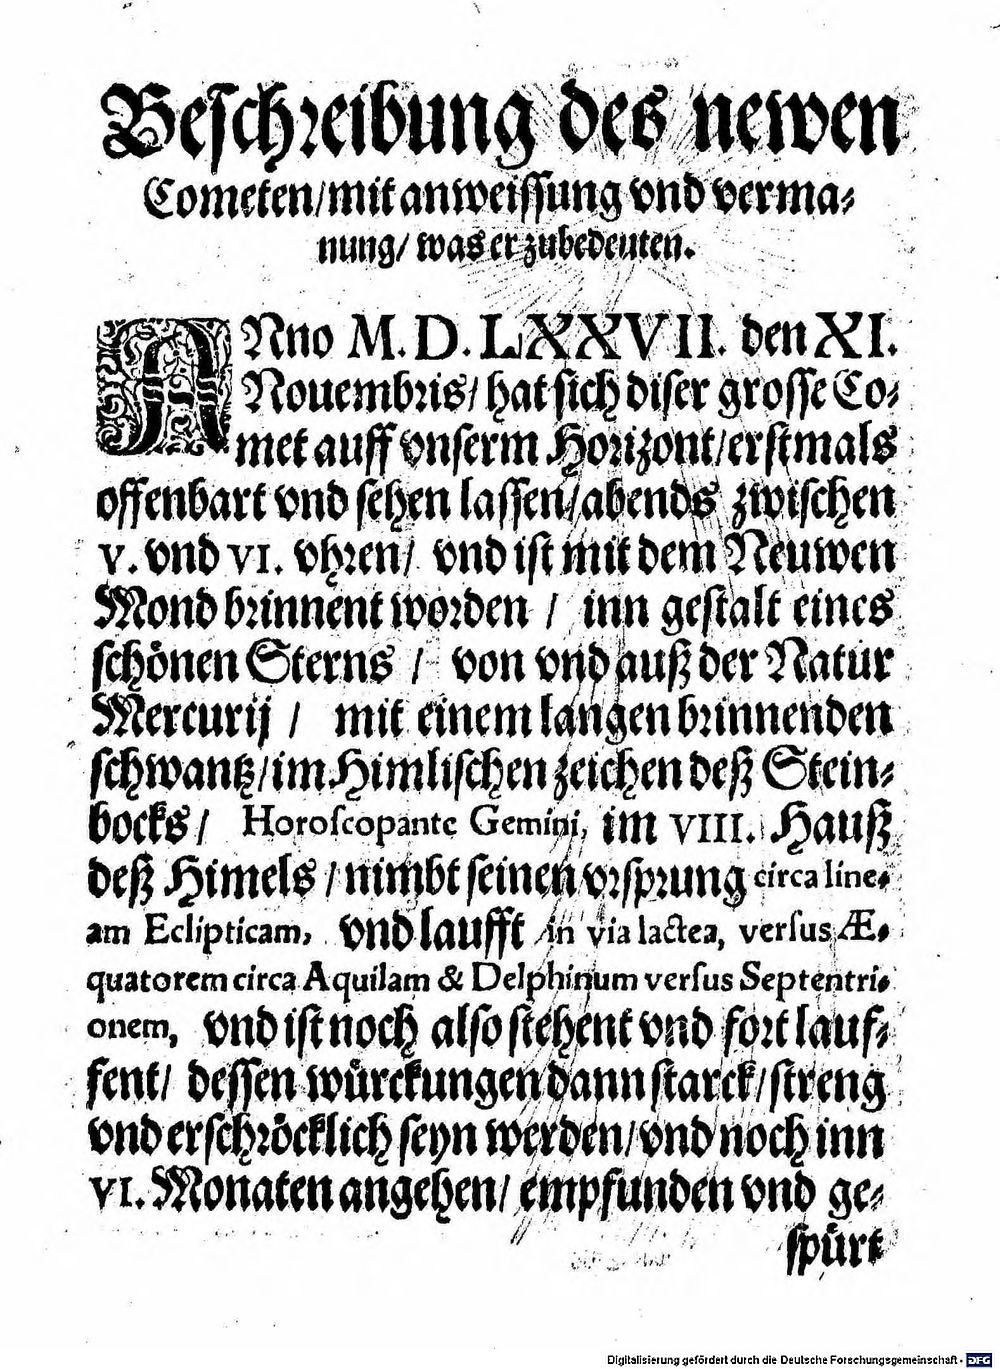 Beſchreibung des newen
Cometen/mit anweiſſung vnd verma⸗
nung/ was er zubedeuten.
ANno M. D. LXXVII. den XI.
Nouembris/ hat ſich diſer groſſe Co⸗
met auff vnſerm Horizont/erſtmals
offenbart vnd ſehen laſſen/abends zwiſchen
V. vnd VI. vhren/ vnd iſt mit dem Neuwen
Mond brinnent worden / inn geſtalt eines
ſchönen Sterns / von vnd auß der Natur
Mercurij / mit einem langen brinnenden
ſchwantz/im Himliſchen zeichen deß Stein⸗
bocks/ Horoſcopante Gemini, im VIII. Hauß
deß Himels / nimbt ſeinen vrſprung circa line⸗
am Eclipticam, vnd laufft in via lactea, verſus Æ⸗
quatorem circa Aquilam & Delphinum verſus Septentri⸗
onem, vnd iſt noch alſo ſtehent vnd fort lauf⸗
fent/ deſſen würckungen dann ſtarck/ſtreng
vnd erſchröcklich ſeyn werden/vnd noch inn
VI. Monaten angehen/ empfunden vnd ge⸗
ſpürt
Digitalisierung gefördert durch die Deutsche Forschungsgemeinschaft - DFG